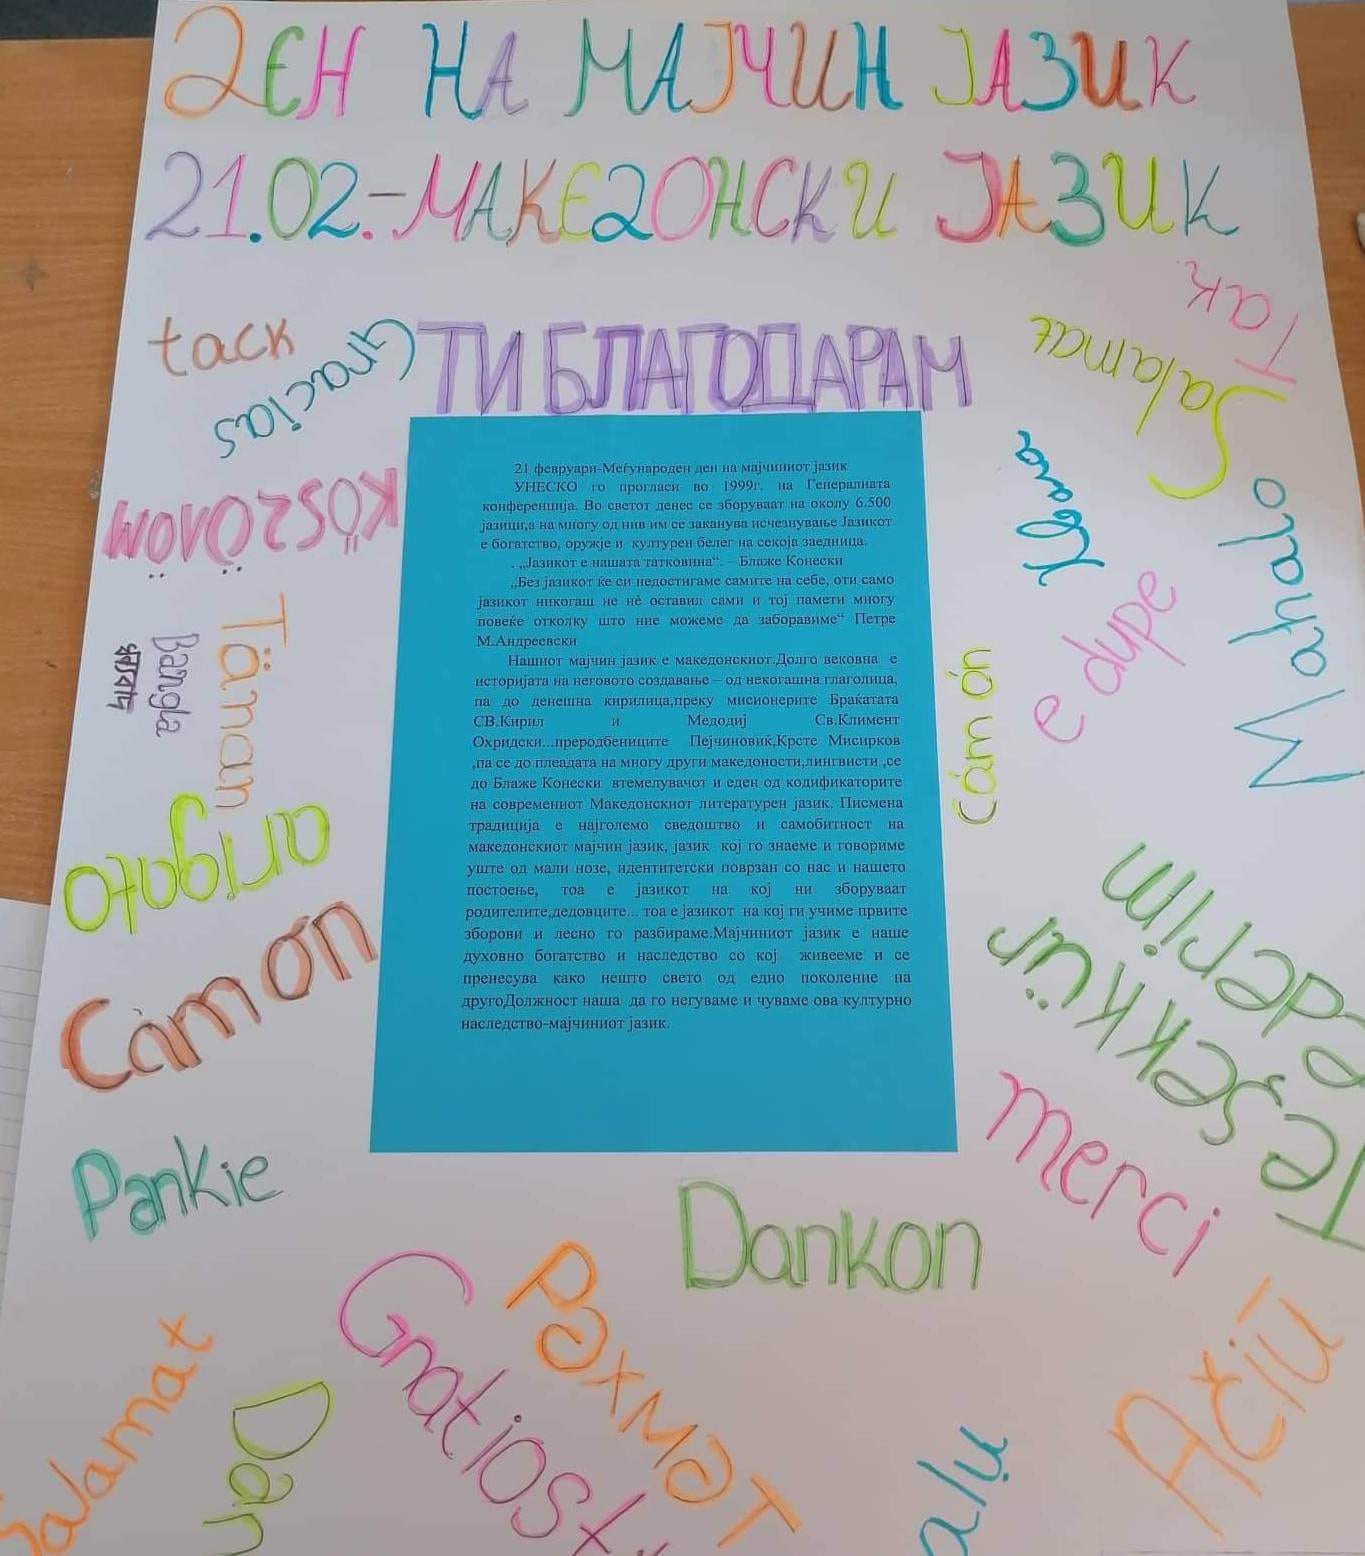 ДЕН НА МАЈЧИН ЈАЗИК
21.02.-МАКЕДОНСКИ ЈАЗИК
Так
tack
Gracias
ТИ БЛАГОДАРАМ
Salamat
Köszövöm
Mahalo
e dupe
Täman
Bangla
cám ón
arigato
Cámón
Teşekkür
ederim
merci
Pankie
Dankon
21 февруари-Меѓународен ден на мајчиниот јазик
УНЕСКО го прогласи во 1999г. на Генералната
конференција. Во светот денес се зборуваат на околу 6.500
јазици,а на многу од нив им се заканува исчезнување Јазикот
е богатство, оружје и културен белег на секоја заедница.
. „Јазикот е нашата татковина“. – Блаже Конески
„Без јазикот ќе си недостигаме самите на себе, оти само
јазикот никогаш не нѐ оставил сами и тој памети многу
повеќе отколку што ние можеме да заборавиме“ Петре
М.Андреевски
Нашиот мајчин јазик е македонскиот.Долго вековна е
историјата на неговото создавање – од некогашна глаголица,
па до денешна кирилица,преку мисионерите Браќатата
СВ.Кирил и Медодиј Св.Климент
Охридски...преродбениците Пејчиновиќ,Крсте Мисирков
,па се до плеадата на многу други македоности,лингвисти ,се
до Блаже Конески втемелувачот и еден од кодификаторите
на современиот Македонскиот литературен јазик. Писмена
традиција е најголемо сведоштво и самобитност на
македонскиот мајчин јазик, јазик кој го знаеме и говориме
уште од мали нозе, идентитетски поврзан со нас и нашето
постоење, тоа е јазикот на кој ни зборуваат
родителите,дедовците... тоа е јазикот на кој ги учиме првите
зборови и лесно го разбираме.Мајчиниот јазик е наше
духовно богатство и наследство со кој живееме и се
пренесува како нешто свето од едно поколение на
другоДолжност наша да го негуваме и чуваме ова културно
наследство-мајчиниот јазик.
Рәхмәт
Ačiū
Salamat
Dan